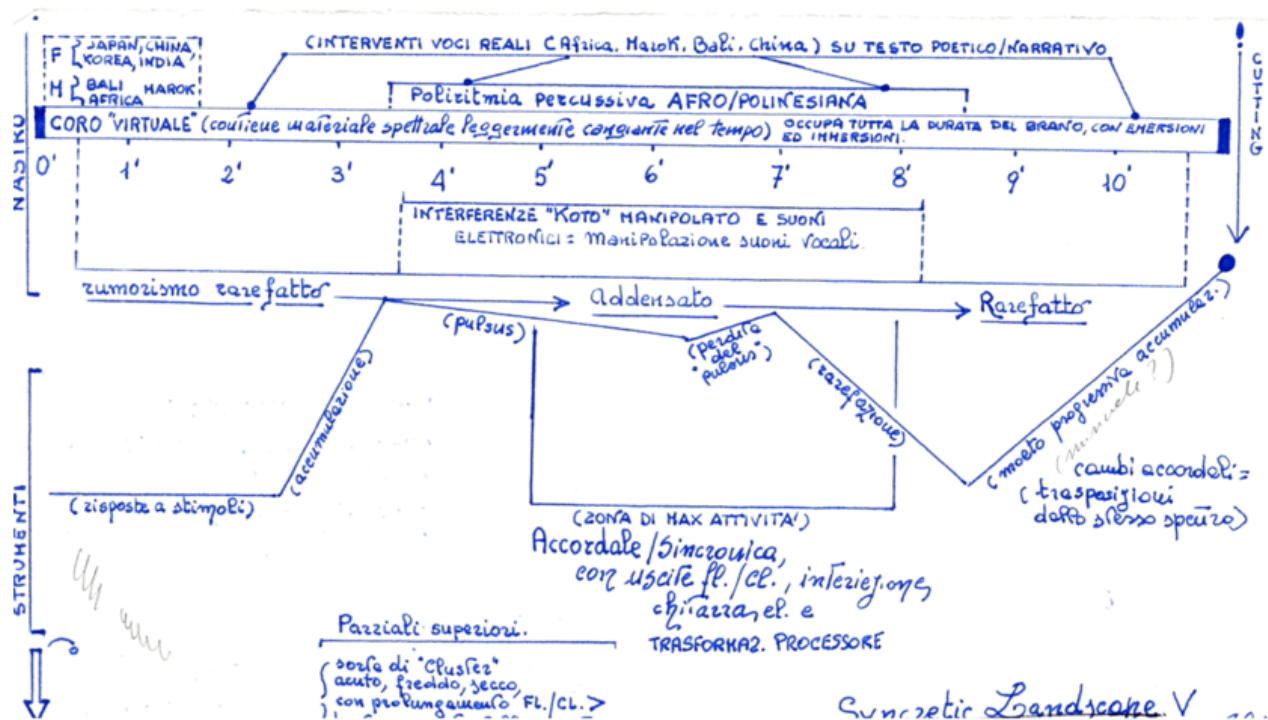 F { JAPAN, CHINA,
KOREA, INDIA
H { BALI MAROK
AFRICA
(INTERVENTI VOCI REALI (Africa. Marok. Bali. China) SU TESTO POETICO/NARRATIVO
CUTTING
Poliritmia percussiva AFRO/POLINESIANA
NASTRO
CORO "VIRTUALE" (contiene materiale spettrale leggermente cangiante nel tempo) OCCUPA TUTTA LA DURATA DEL BRANO, CON EMERSIONI
ED IMMERSIONI.
0' 1' 2' 3' 4' 5' 6' 7' 8' 9' 10'
INTERFERENZE "KOTO" MANIPOLATO E SUONI
ELETTRONICI = Manipolazione suoni vocali.
rumorismo rarefatto
addensato
Rarefatto
(pulsus)
(perdita
del
"pulsus")
(accumulazione)
(rarefazione)
(molto progressiva accumulaz.)
STRUMENTI
(risposte a stimoli)
cambi accordali =
(trasposizioni
dello stesso spettro)
(ZONA DI MAX ATTIVITA')
Accordale/Sincronica,
con uscite fl./cl., interiezione
chitarra, el. e
TRASFORMAZ. PROCESSORE
Parziali superiori.
sorta di "Cluster"
acuto, freddo, secco,
con prolungamento FL./CL. >
Syncretic Landscape V